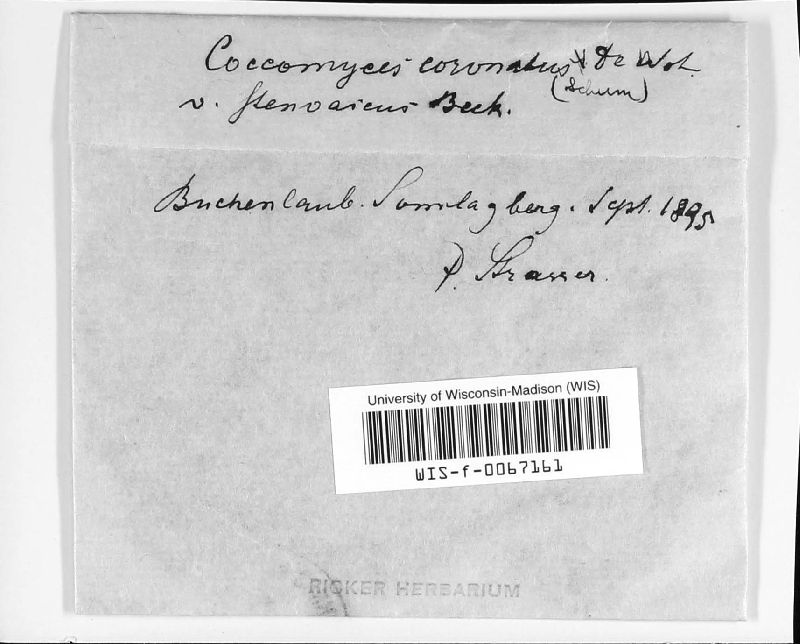 Coccomyces coronatus De Not.
(Schum)
v. stenoascus Beck.
Buchenlaub. Sonntagberg. Sept. 1895
P. Strasser.
University of Wisconsin-Madison (WIS)
WIS-f-0067161
RICKER HERBARIUM